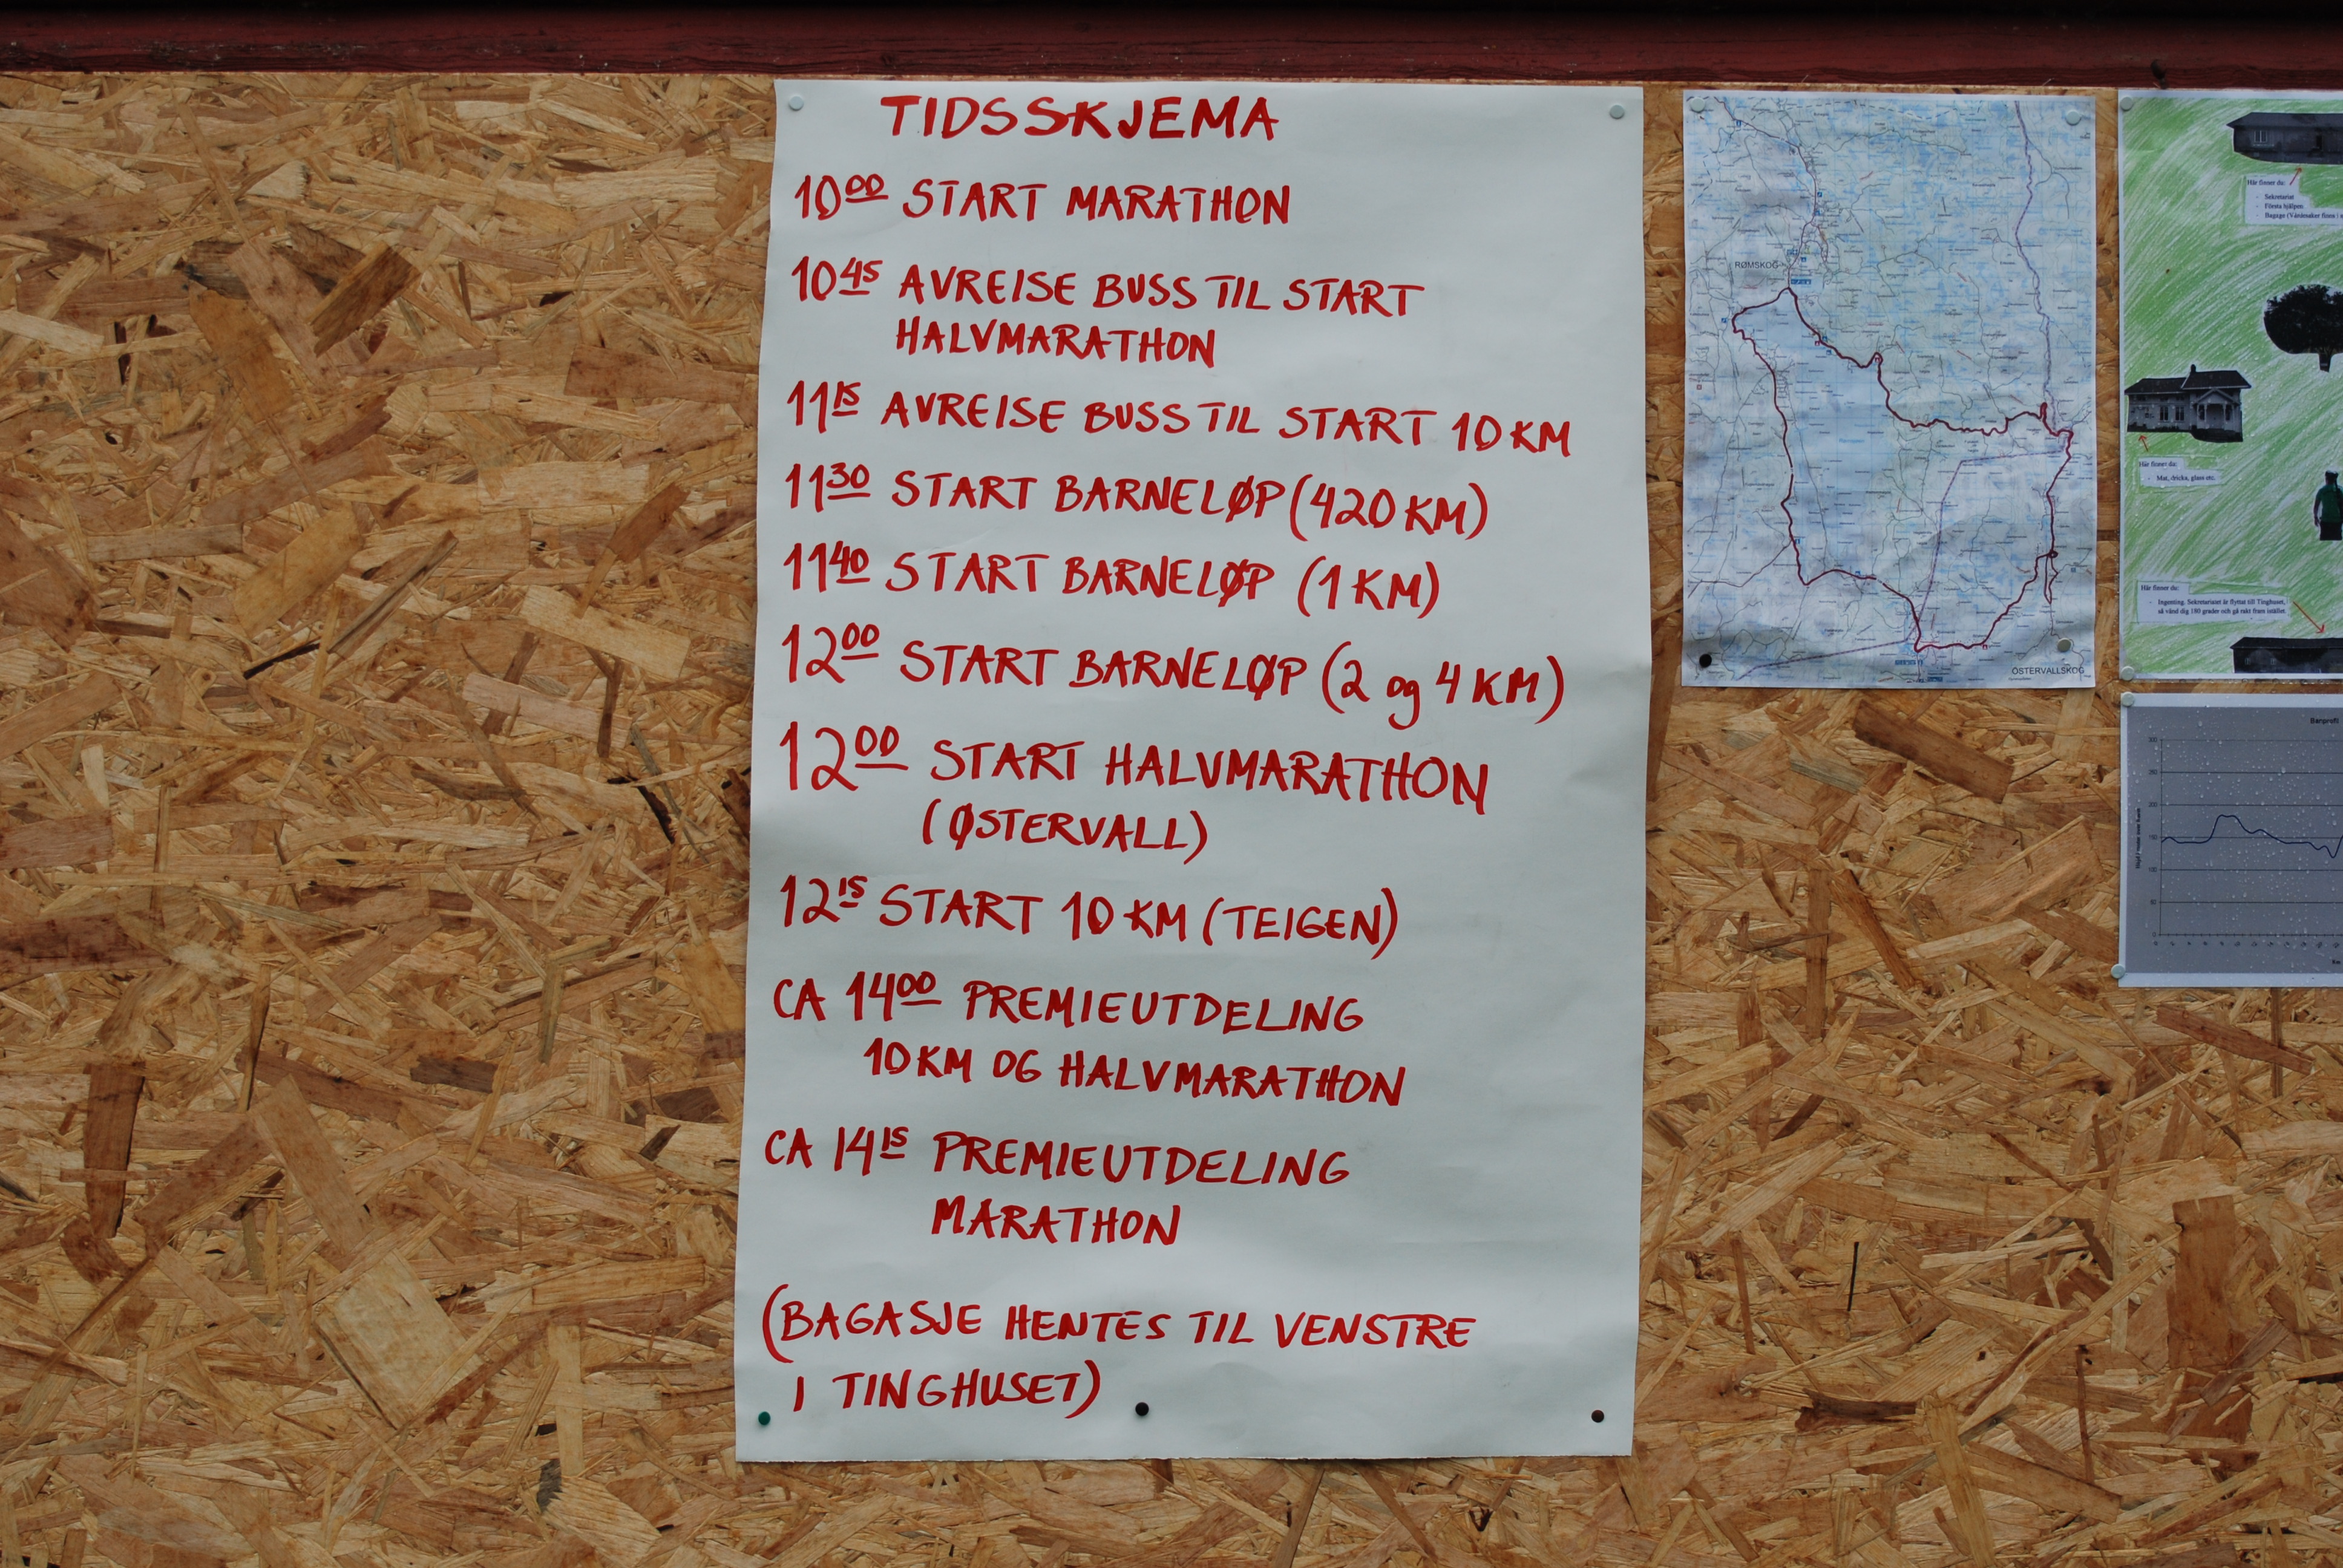 TIDSSKJEMA
10⁰⁰ START MARATHON
10⁴⁵ AVREISE BUSS TIL START
HALVMARATHON
11¹⁵ AVREISE BUSS TIL START 10 KM
11³⁰ START BARNELØP (420 KM)
11⁴⁰ START BARNELØP (1 KM)
12⁰⁰ START BARNELØP (2 og 4 KM)
12⁰⁰ START HALVMARATHON
(ØSTERVALL)
12¹⁵ START 10 KM (TEIGEN)
CA 14⁰⁰ PREMIEUTDELING
10 KM OG HALVMARATHON
CA 14¹⁵ PREMIEUTDELING
MARATHON
(BAGASJE HENTES TIL VENSTRE
I TINGHUSET)
RØMSKOG
ÖSTERVALLSKOG
Här finner du:
- Sekretariat
- Första hjälpen
- Bagage (Väntsaker finns i
Här finner du:
- Mat, dricka, glass etc.
Här finner du:
- Ingenting. Sekretariatet är flyttat till Tinghuset,
så vänd dig 180 grader och gå rakt fram istället.
Banprofi